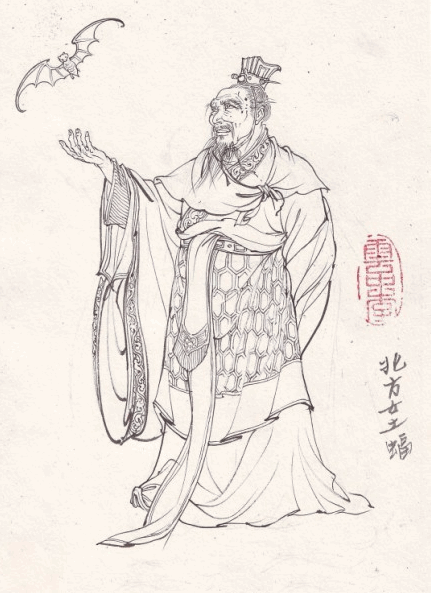 北方女土蝠